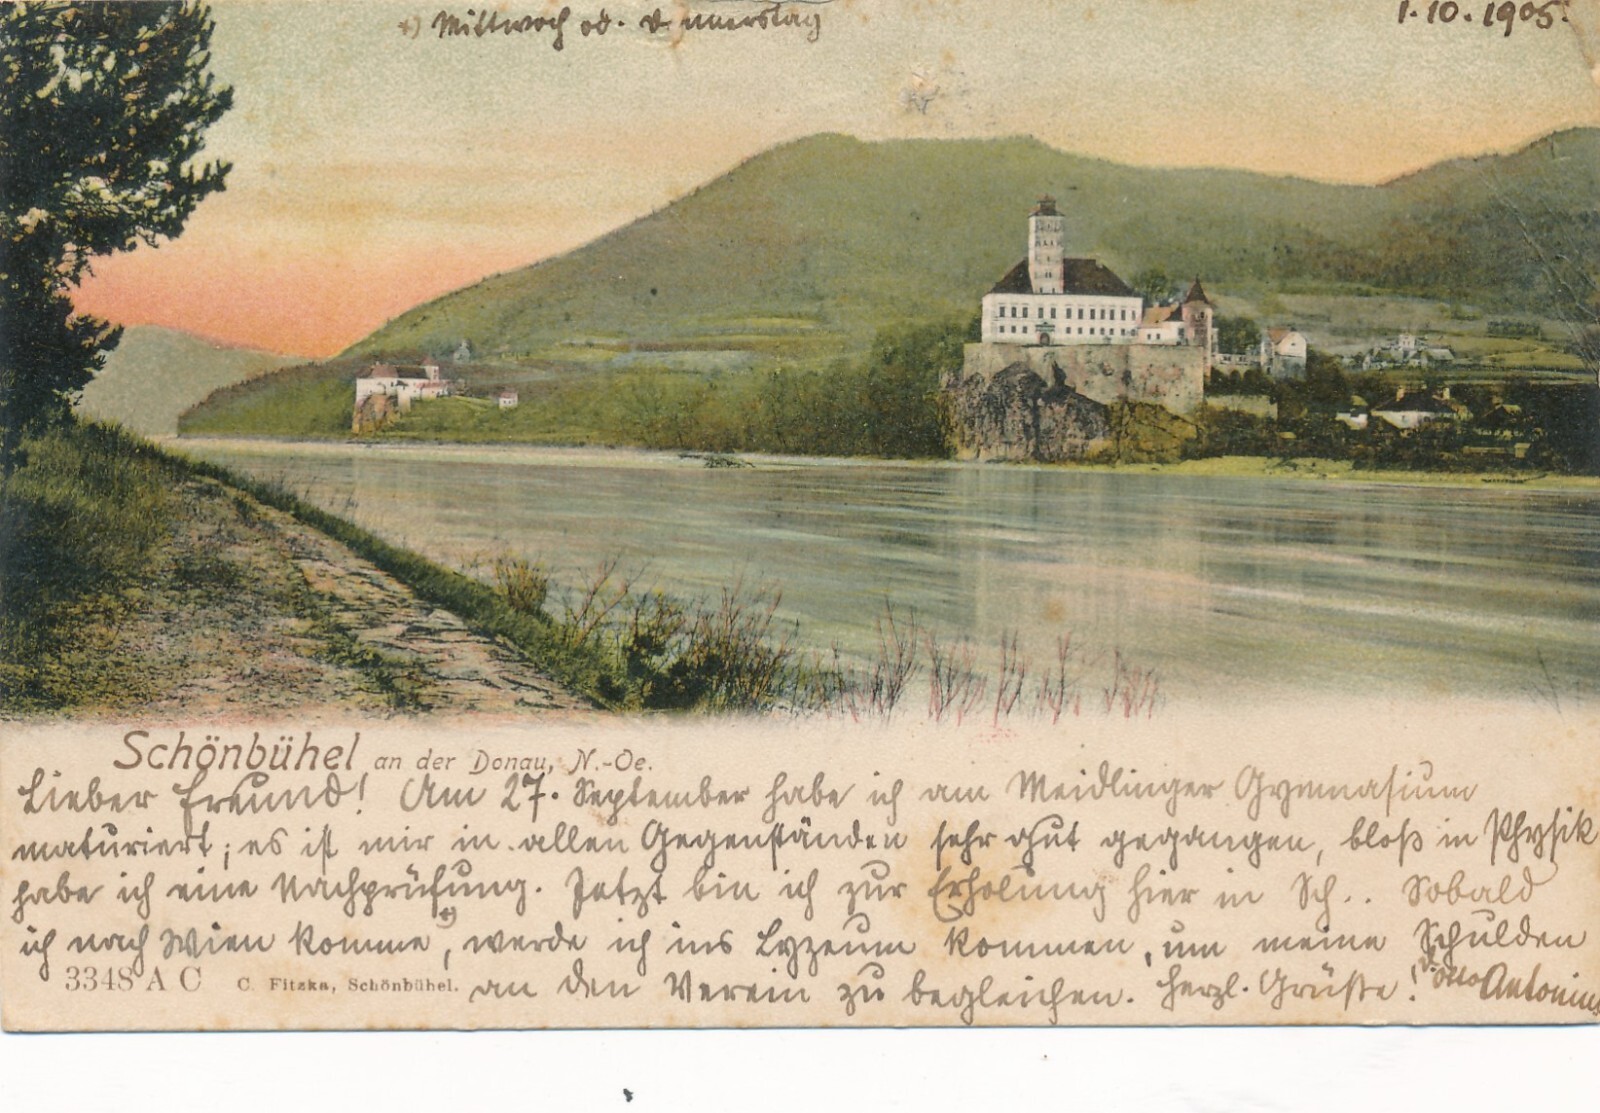 +) Mittwoch od. Donnerstag
1.10.1905.
Schönbühel an der Donau, N.-Oe.
Lieber Freund! Am 27. September habe ich am Meidlinger Gymnasium
maturiert; es ist mir in allen Gegenständen sehr gut gegangen, bloß in Physik
habe ich eine Nachprüfung. Jetzt bin ich zur Erholung hier in Sch.. Sobald
ich nach Wien komme +), werde ich ins Lyzeum kommen, um meine Schulden
3348 A C C. Fitzka, Schönbühel. an den Verein zu begleichen. Herzl. Grüße! Otto Antonius